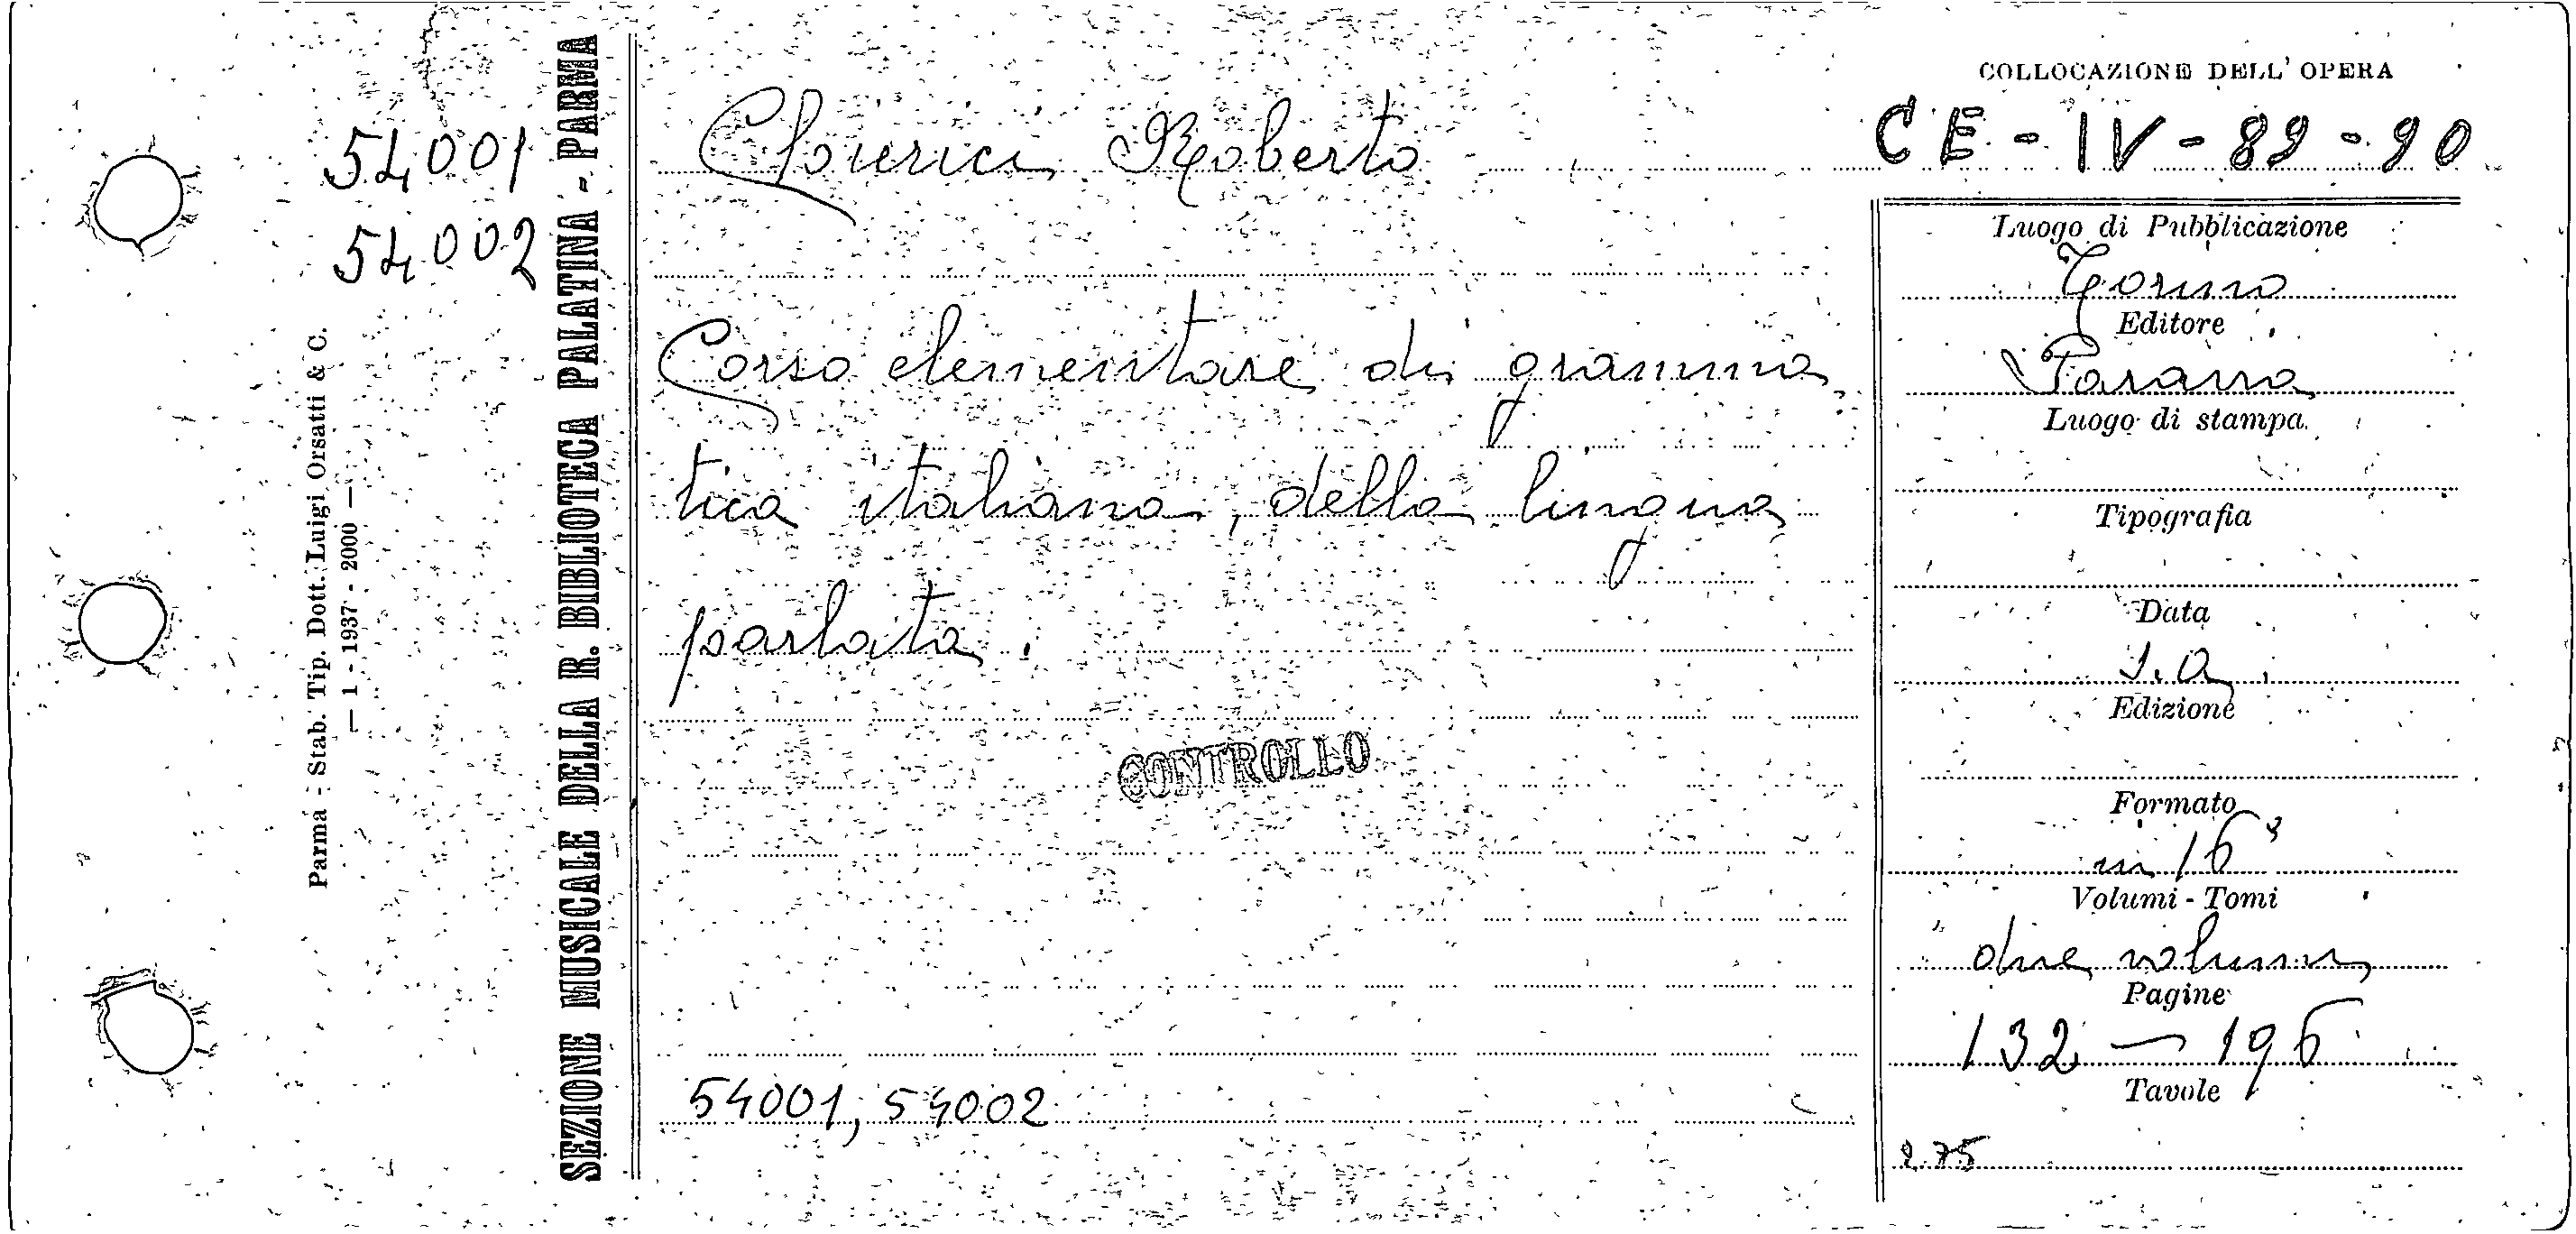 54001
54002
Parma - Stab. Tip. Dott. Luigi Orsatti & C.
— 1 - 1937 - 2000 —
SEZIONE MUSICALE DELLA R. BIBLIOTECA PALATINA - PARMA
Roberto
Corso elementare di gramma
tica italiana, della lingua
parlata.
CONTROLLO
54001, 54002
COLLOCAZIONE DELL'OPERA
CE - IV - 89 - 90
Luogo di Pubblicazione
Torino
Editore
Luogo di stampa
Tipografia
Data
s.a.
Edizione
Formato
in 16°
Volumi - Tomi
due volumi
Pagine
132 — 196
Tavole
275